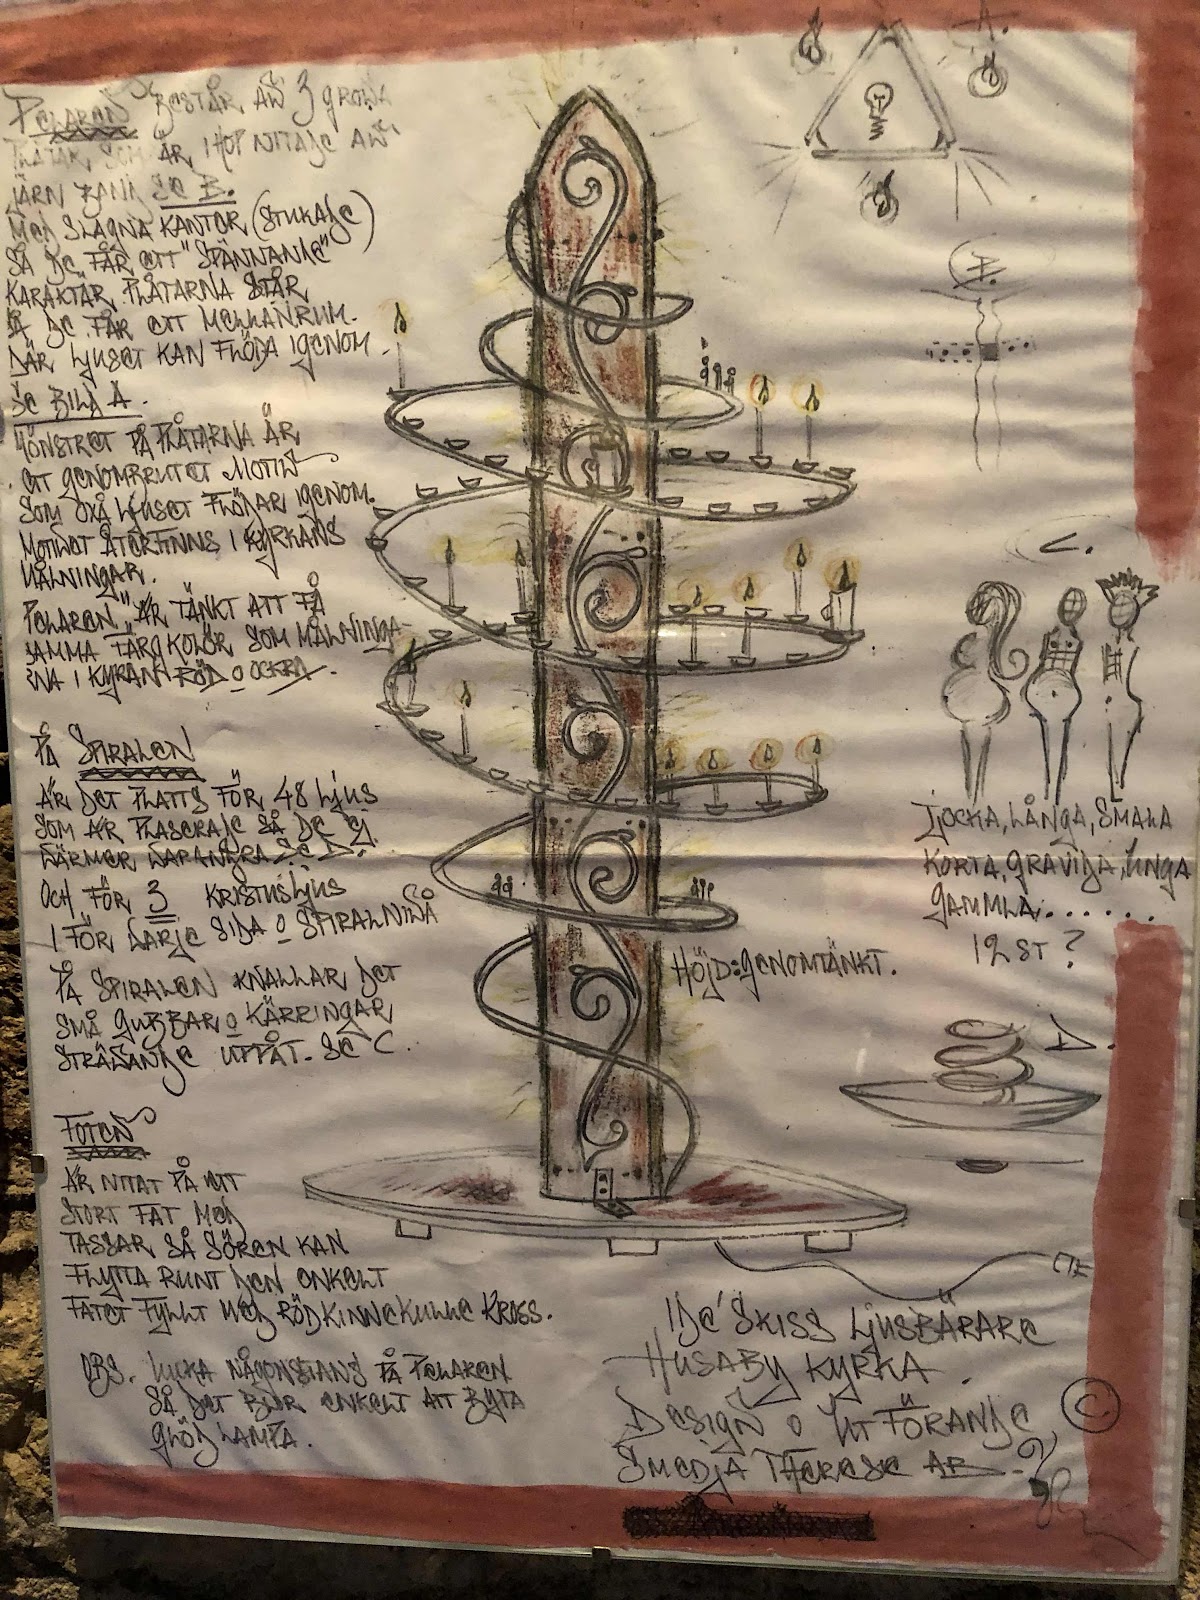 PELAREN BESTÅR AV 3 GROVA
PLÅTAR, SOM ÄR IHOP NITADE AV
JÄRN BAND SE B.
MED SLAGNA KANTER (STUKADE)
SÅ DE FÅR ETT "SPÄNNANDE"
KARAKTÄR. PLÅTARNA STÅR
SÅ DE FÅR ETT MELLANRUM.
DÄR LJUSET KAN FLÖDA IGENOM.
SE BILD A.
MÖNSTRET PÅ PLÅTARNA ÄR
ETT GENOMBRUTET MOTIV
SOM OXÅ LJUSET FLÖDAR IGENOM.
MOTIVET ÅTERFINNS I KYRKANS
MÅLNINGAR.
PELAREN ÄR TÄNKT ATT FÅ
SAMMA FÄRG KOLÖR SOM MÅLNINGA-
RNA I KYRKAN RÖD O OCKRA.
PÅ SPIRALEN
ÄR DET PLATTS FÖR 48 LJUS
SOM ÄR PLASERADE SÅ DE EJ
VÄRMER VARANDRA SE D.
OCH FÖR 3 KRISTUSLJUS
1 FÖR VARJE SIDA O SPIRALNIVÅ
PÅ SPIRALEN KNALLAR DET
SMÅ GUBBAR O KÄRRINGAR
STRÄVANDE UPPÅT. SE C.
FOTEN
ÄR NITAT PÅ ETT
STORT FAT MED
TASSAR SÅ SÖREN KAN
FLYTTA RUNT DEN ENKELT
FATET FYLLT MED RÖD KINNEKULLE KROSS.
OBS. LUCKA NÅGONSTANS PÅ PELAREN
SÅ DET BLIR ENKELT ATT BYTA
GLÖDLAMPA.
A.
B.
C.
TJOCKA, LÅNGA, SMALA
KORTA, GRAVIDA, UNGA
GAMMLA......
12 ST?
HÖJD: GENOMTÄNKT.
D.
IDÉ SKISS LJUSBÄRARE
HUSABY KYRKA.
DESIGN O UTFÖRANDE
SMEDJA THERESE AB
©